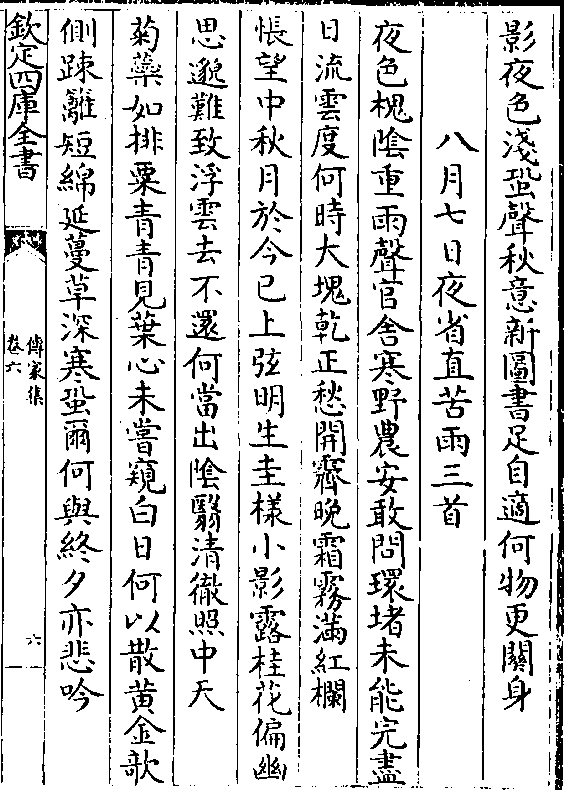 影夜色淺蛩聲秋意新圖書足自適何物更關身
八月七日夜省直苦雨三首
夜色槐陰重雨聲官舍寒野農安敢問環堵未能完盡
日流雲度何時大塊乾正愁開霽晚霜霧滿紅欄
悵望中秋月於今已上弦明生圭樣小影露桂花偏幽
思邈難致浮雲去不還何當出陰翳清徹照中天
菊蘂如排粟青青見葉心未嘗窺白日何以散黄金欹
側踈籬短綿延蔓草深寒蛩爾何與終夕亦悲吟
欽定四庫全書
傳家集
卷六
六